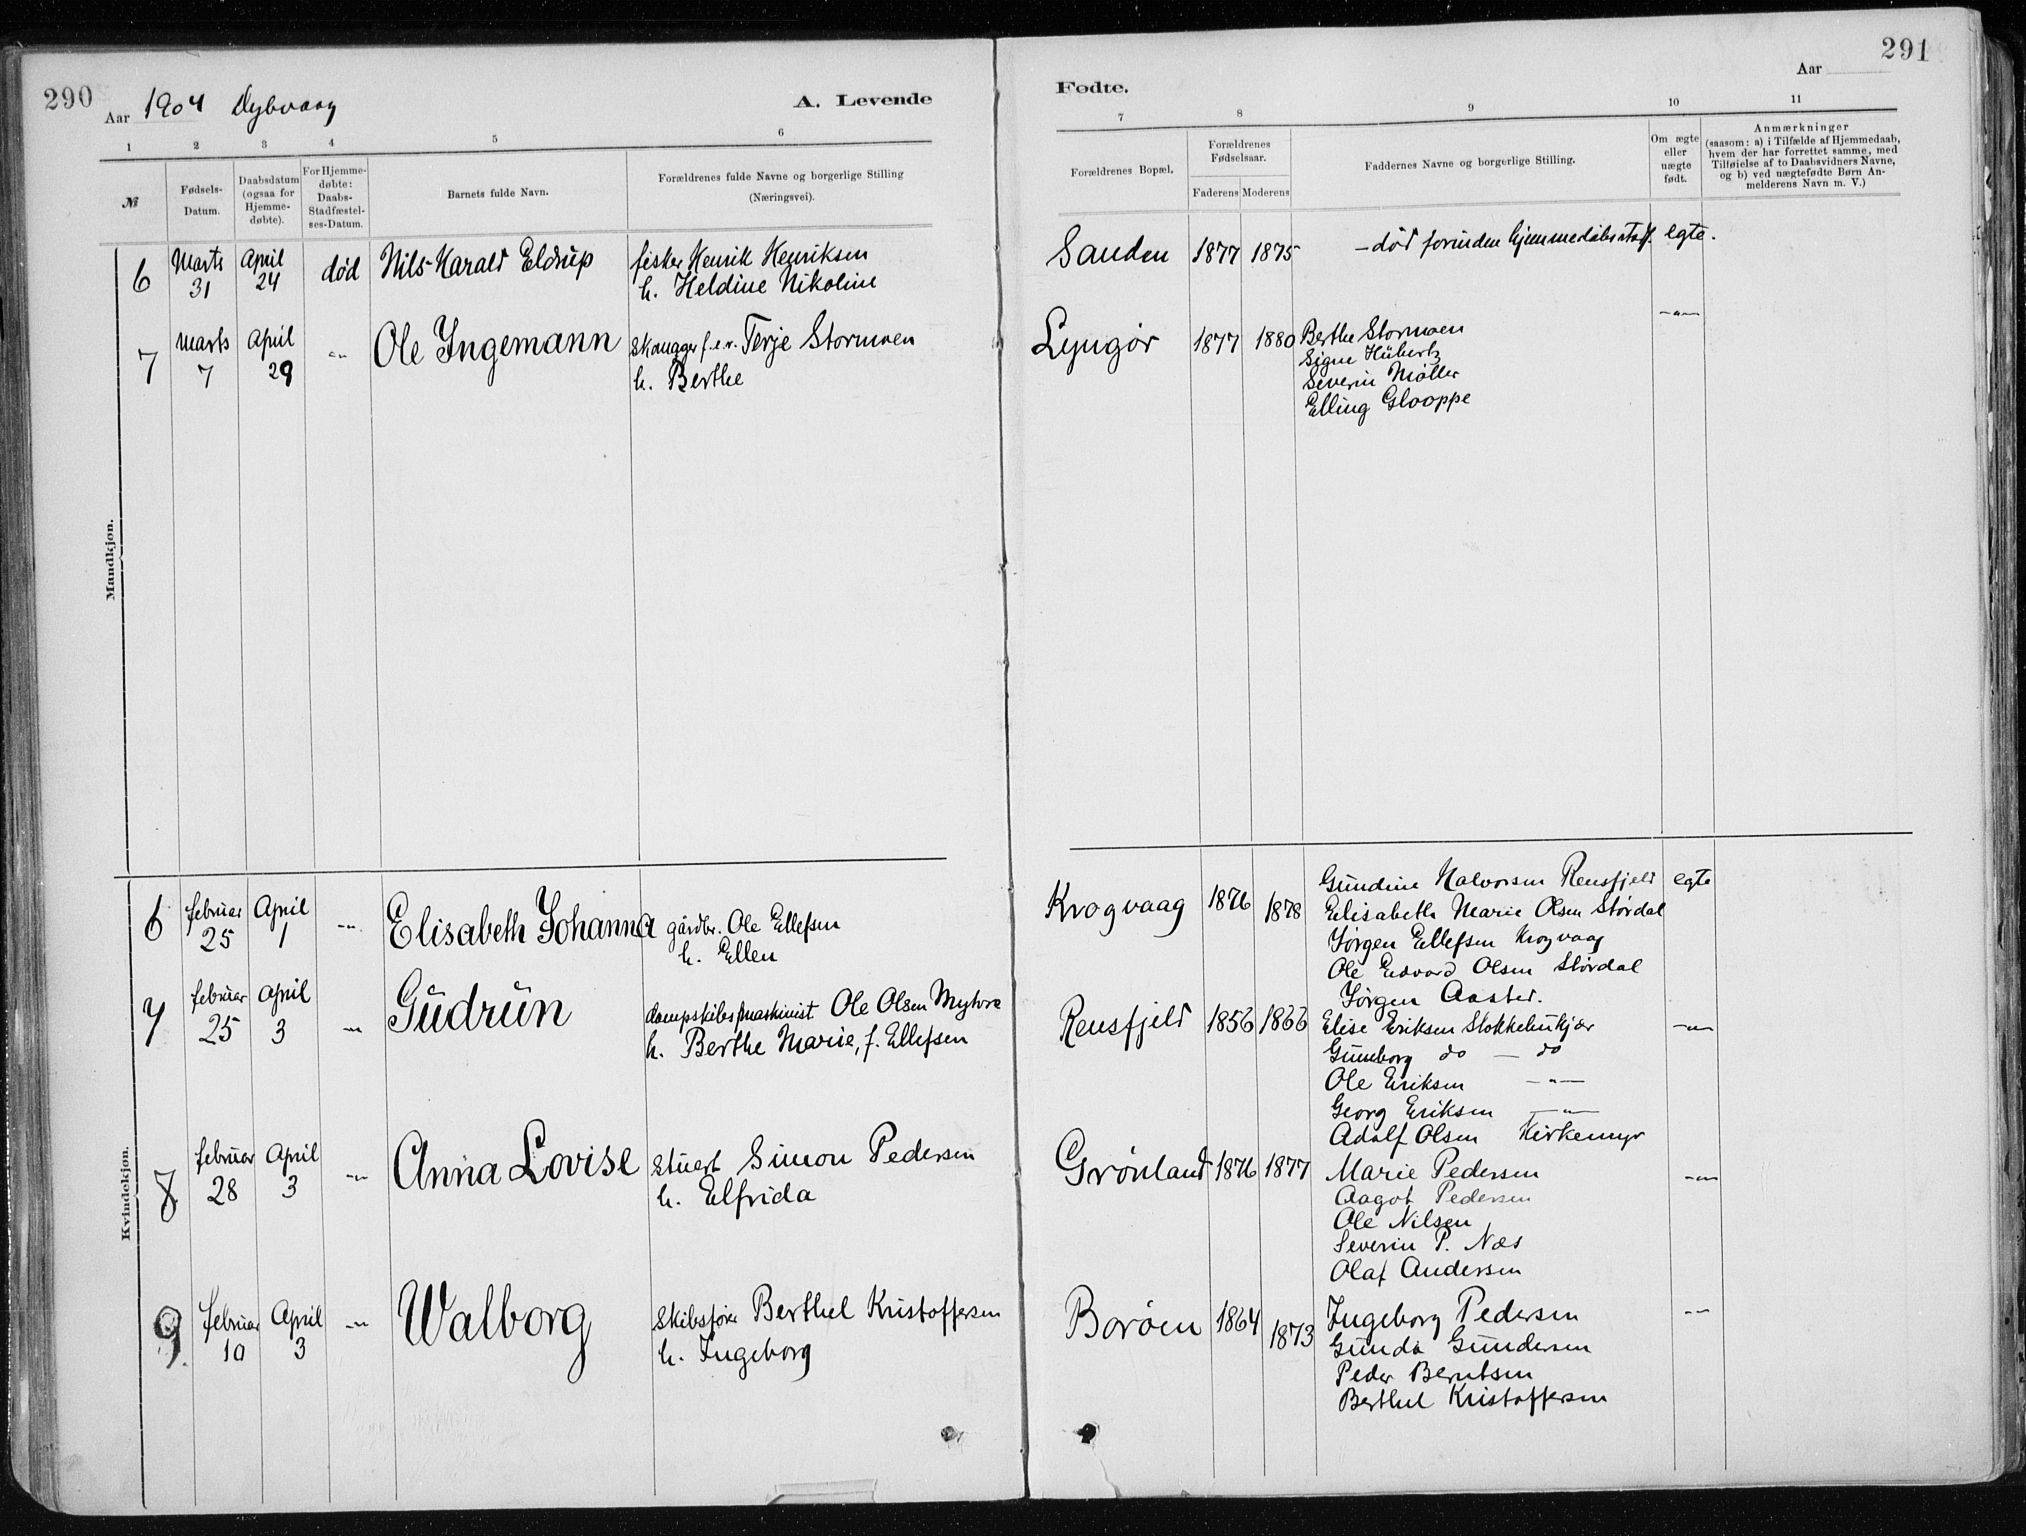 290
Aar 1904 Dybvaag
A. Levende
1 2 3 4 5 6
№
Fødsels-
Datum.
Daabsdatum
(ogsaa for
Hjemme-
døbte).
For Hjemme-
døbte:
Daabs-
Stadfæstel-
ses-Datum.
Barnets fulde Navn.
Forældrenes fulde Navne og borgerlige Stilling
(Næringsvei).
Mandkjøn.
6 Marts 31 April 24 død Nils Harald Eldrup fisker Henrik Henriksen
h. Heldine Nikoline
7 Marts 7 April 29 -"- Ole Ingemann f.e.v. Terje Stormoen
h. Berthe
Kvindekjøn.
6 februar 25 April 1 -"- Elisabeth Johanna gårdbr. Ole Ellefsen
h. Ellen
7 februar 25 April 3 -"- Gudrun dampskibsmaskinist Ole Olsen Myhre
h. Berthe Marie, f. Ellefsen
8 februar 28 April 3 -"- Anna Lovise stuert Simon Pedersen
h. Elfrida
9 februar 10 April 3 -"- Walborg Skibsfører Berthel Kristoffersen
h. Ingeborg
291
Fødte.
Aar
7 8 9 10 11
Forældrenes Bopæl.
Forældrenes
Fødselsaar.
Faderens Moderens
Faddernes Navne og borgerlige Stilling.
Om ægte
eller
uægte
født.
Anmærkninger
(saasom: a) i Tilfælde af Hjemmedaab,
hvem der har forrettet samme, med
Tilføielse af to Daabsvidners Navne,
og b) ved uægtefødte Børn An-
melderens Navn m. V.)
Sanden 1877 1875 - død forinden hjemmedåbs staff. egte.
Lyngør 1877 1880 Berthe Stormoen -"-
Signe Hübertz
Severin Møller
Elling Glooppe
Krogvaag 1876 1878 Gundine Halvorsen Rensfjeld egte
Elisabeth Marie Olsen Størdal
Jørgen Ellefsen Krogvaag
Ole Edvard Olsen Størdal
Jørgen Aaster.
Rensfjeld 1856 1866 Elise Eriksen -"-
Gunborg do - do
Ole Eriksen -"-
Georg Eriksen -"-
Adolf Olsen Kirkemyr
Grønland 1876 1877 Marie Pedersen -"-
Aagot Pedersen
Ole Nilsen
Severin P. Næs
Olaf Andersen
Borøen 1864 1873 Ingeborg Pedersen -"-
Gunda Gundersen
Peder Berntsen
Berthel Kristoffersen